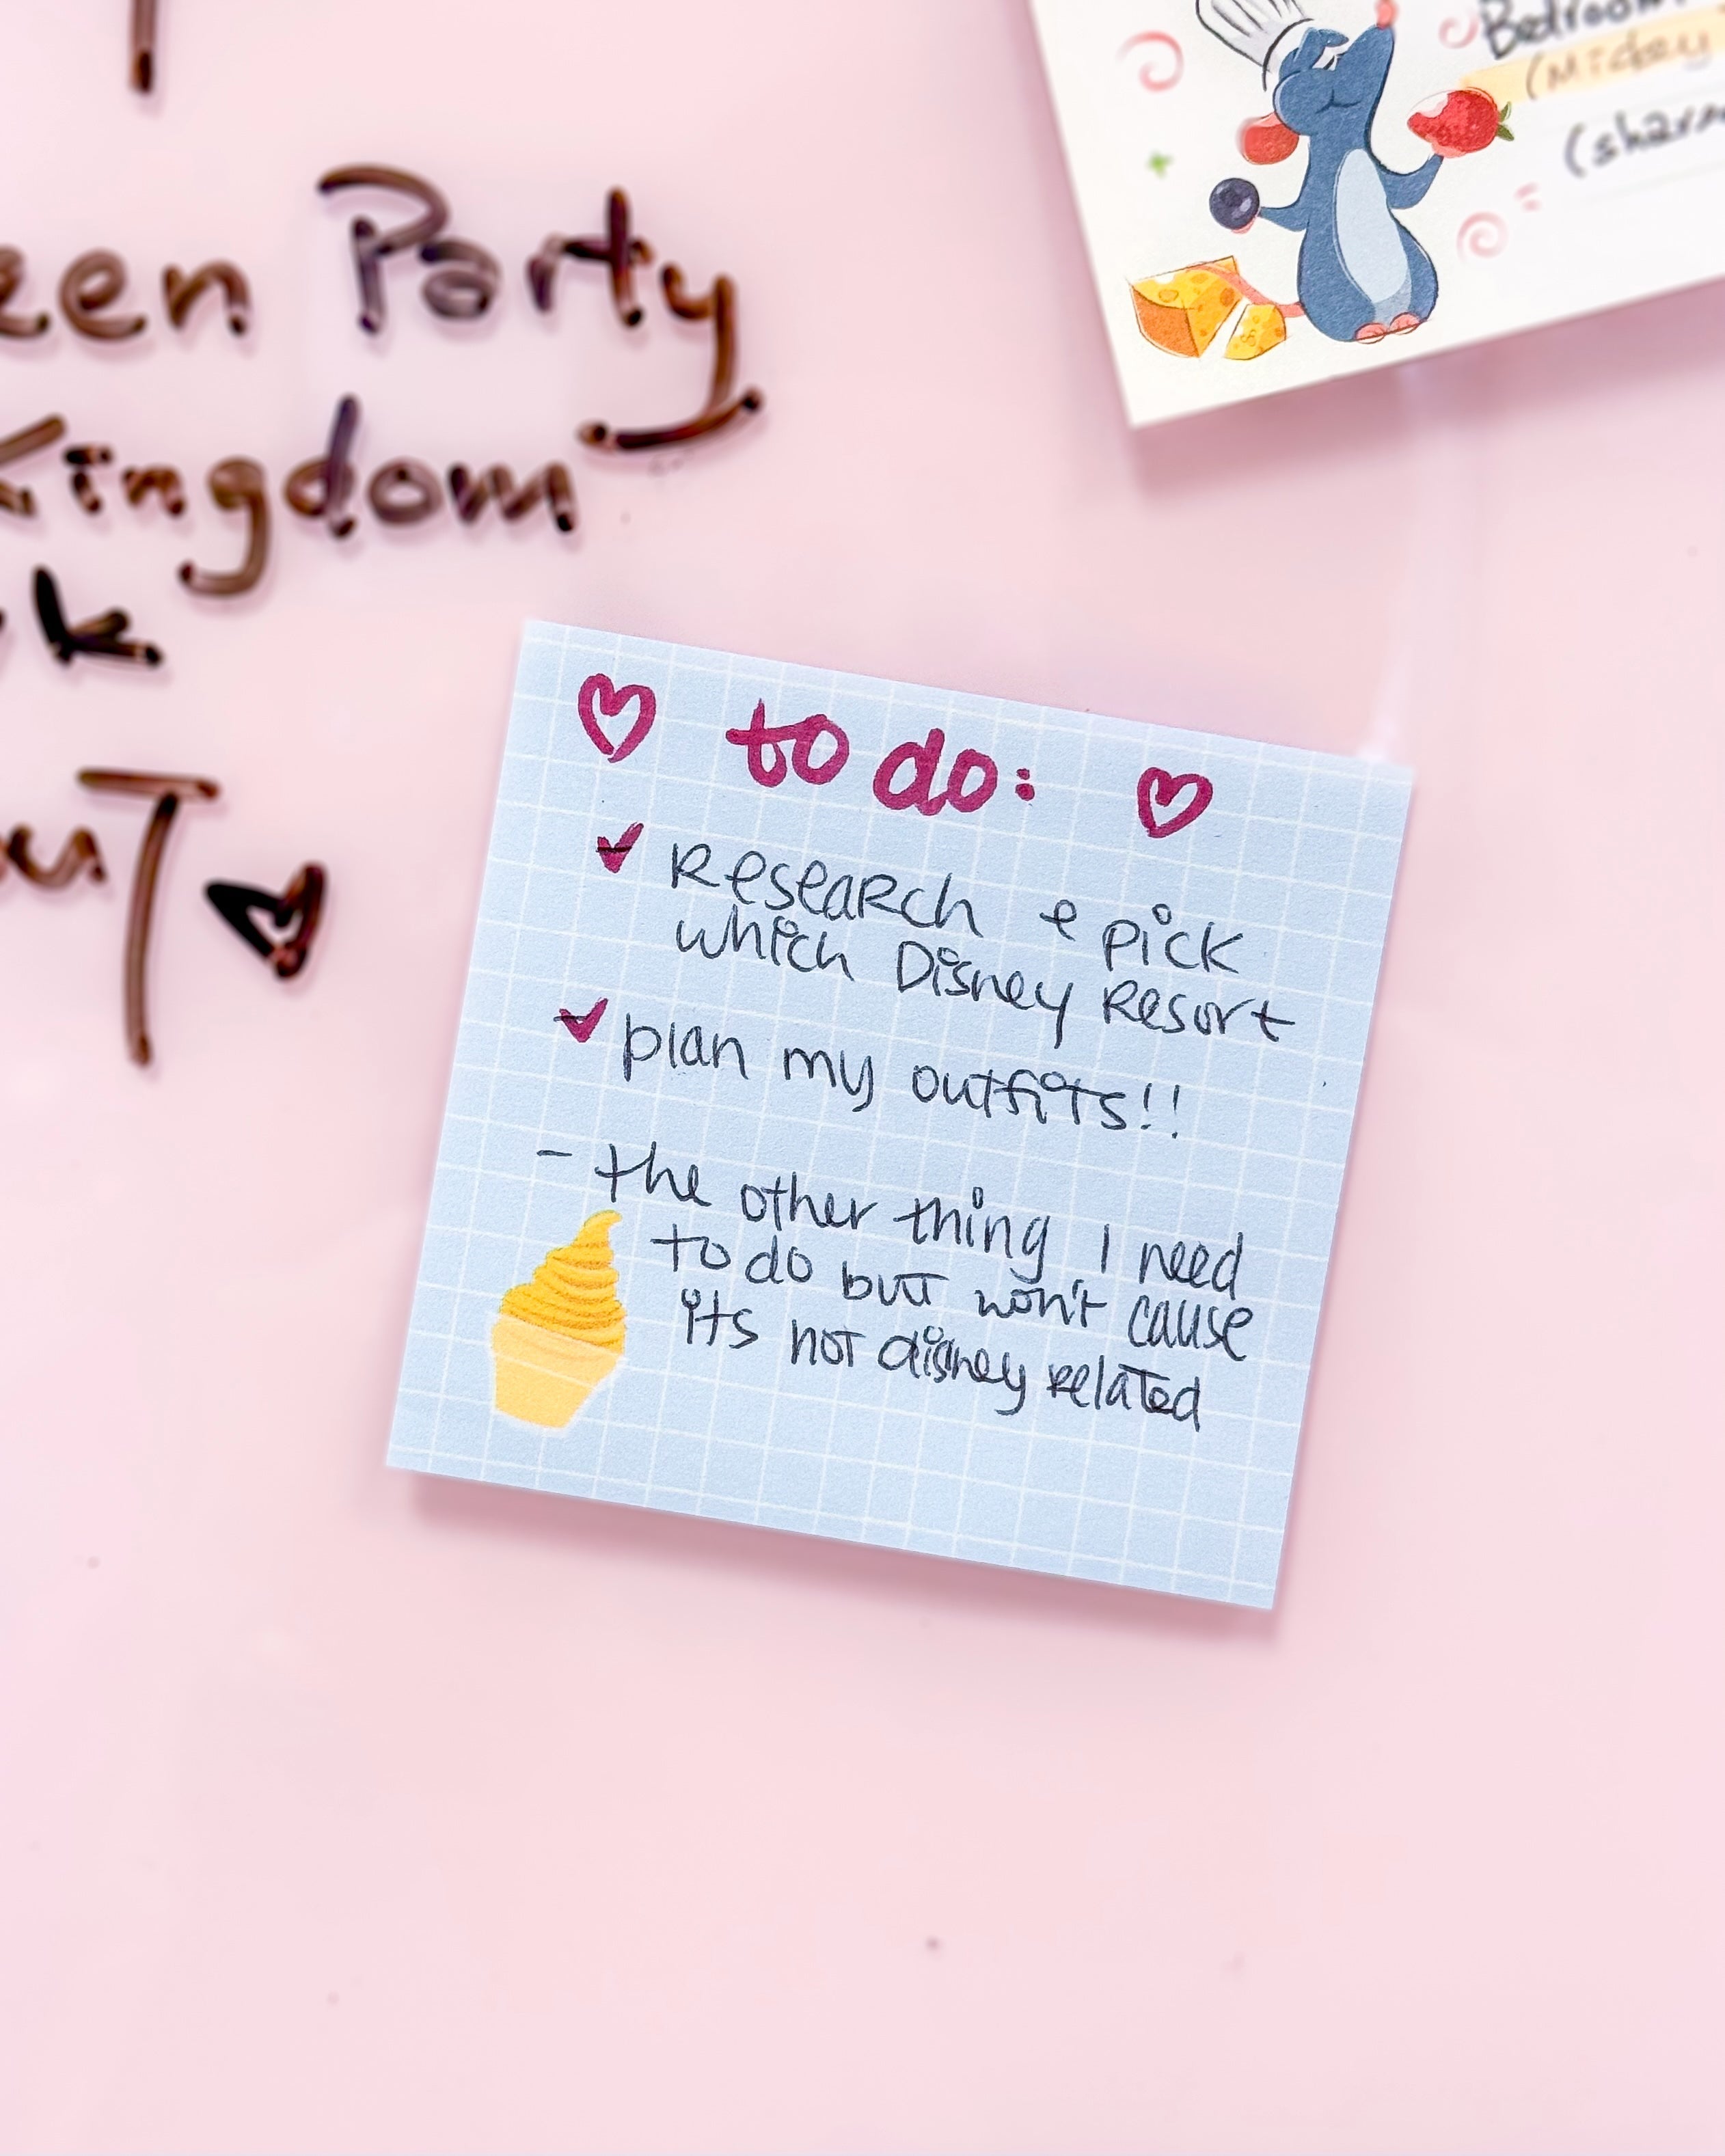 een Party
Kingdom
k
T
Bedroom
(Mickey
♡ to do: ♡
✓ Research & pick
which Disney Resort
✓ plan my outfits!!
- the other thing I need
to do but won't cause
its not disney related